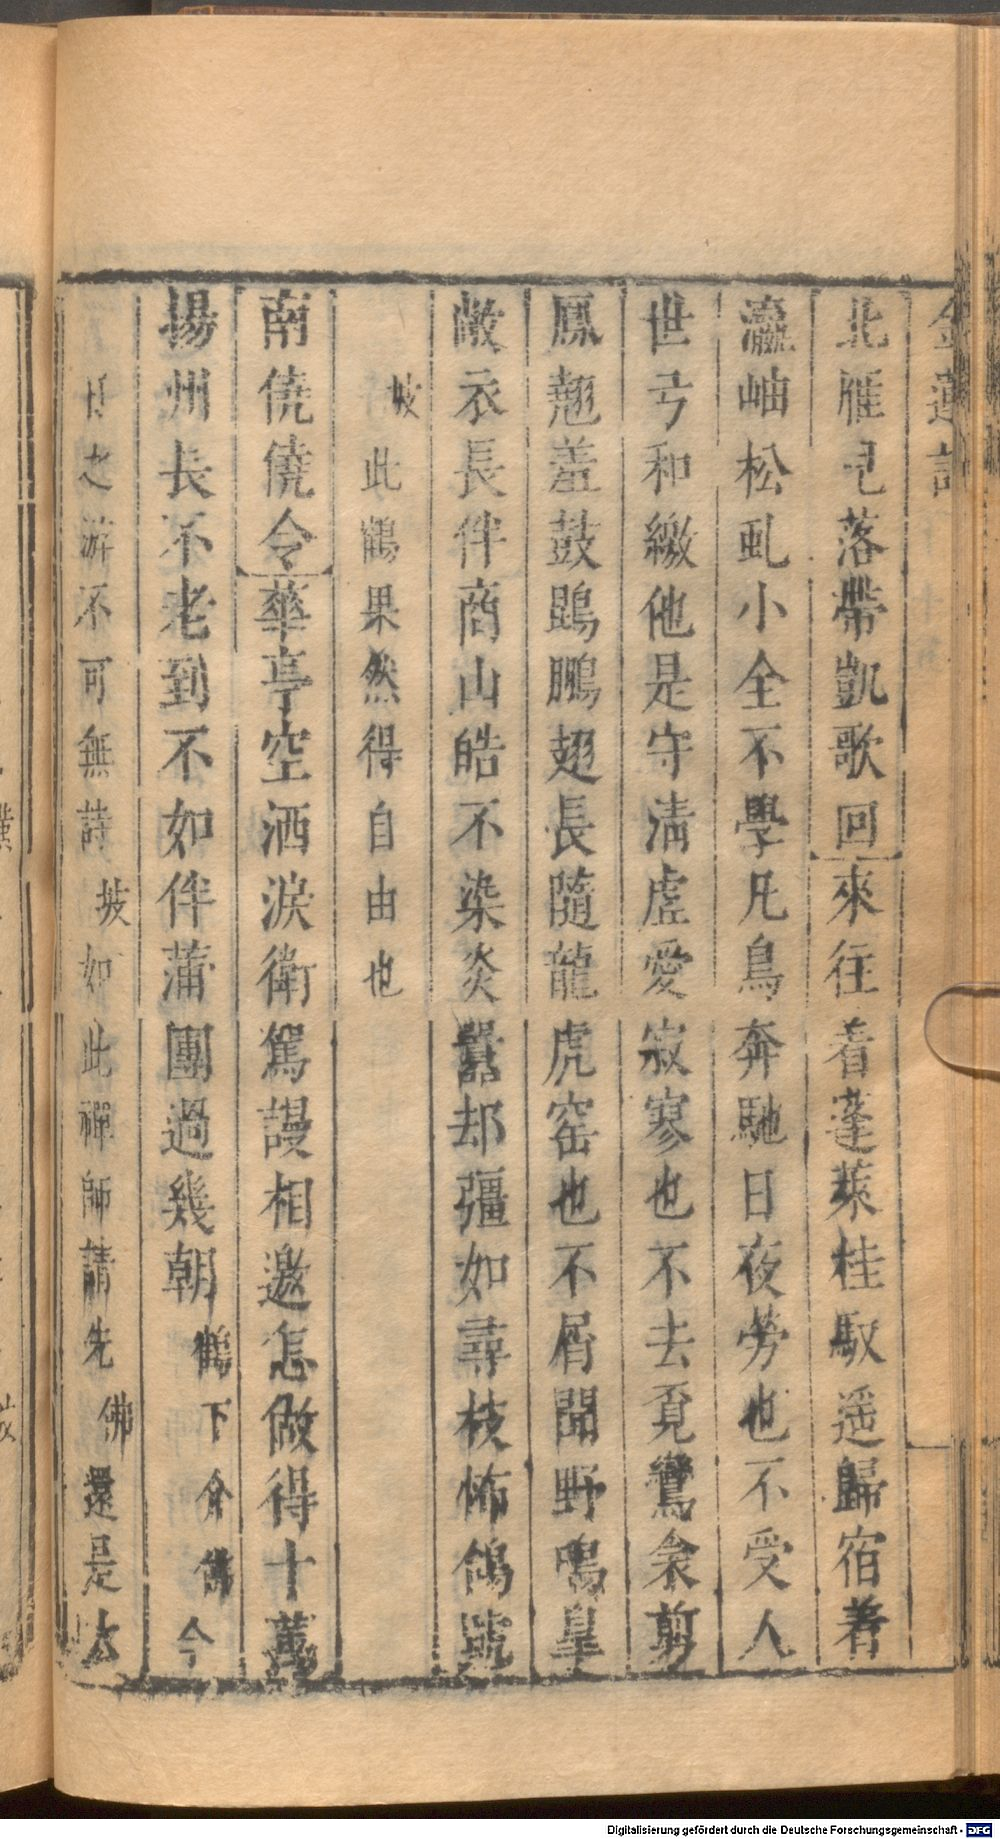 金蓮記
北雁已落帶凱歌回來往看蓬萊桂馭遥歸宿着
瀛岫松虬小全不學凡鳥奔馳日夜劳也不受人
世弓和繳他是守淸虛愛寂寥也不去覔鸞衾剪
鳳翹羞鼓鵾鵬翅長隨龍虎窑也不屑聞野鳴臯
敝衣長伴商山皓不染炎囂却彊如尋枝怖鴿號
坡此鶴果然得自由也
南僥僥令華亭空洒淚衛駕謾相邀怎做得十萬
揚州長不老到不如伴蒲團過幾朝鶴下介佛今
日之游不可無詩坡如此禪師請先佛還是太
Digitalisierung gefördert durch die Deutsche Forschungsgemeinschaft - DFG